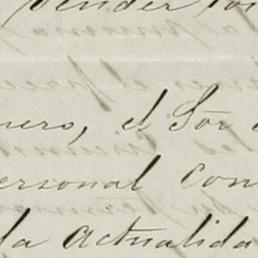 vender
nero, el Sor
ersonal con
la actualida